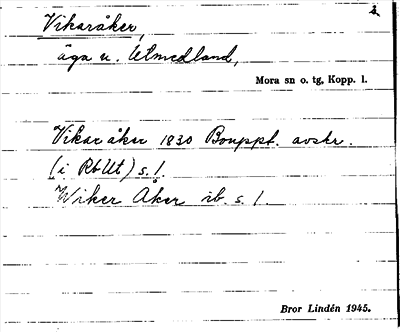 s.
Vikaråker,
äga u. Utmedland,
Mora sn o. tg, Kopp. l.
Vikaråker 1830 Bouppt. avskr.
(i RbUt) s. !.
Wiker Aker ib. s. 1.
Bror Lindén 1945.